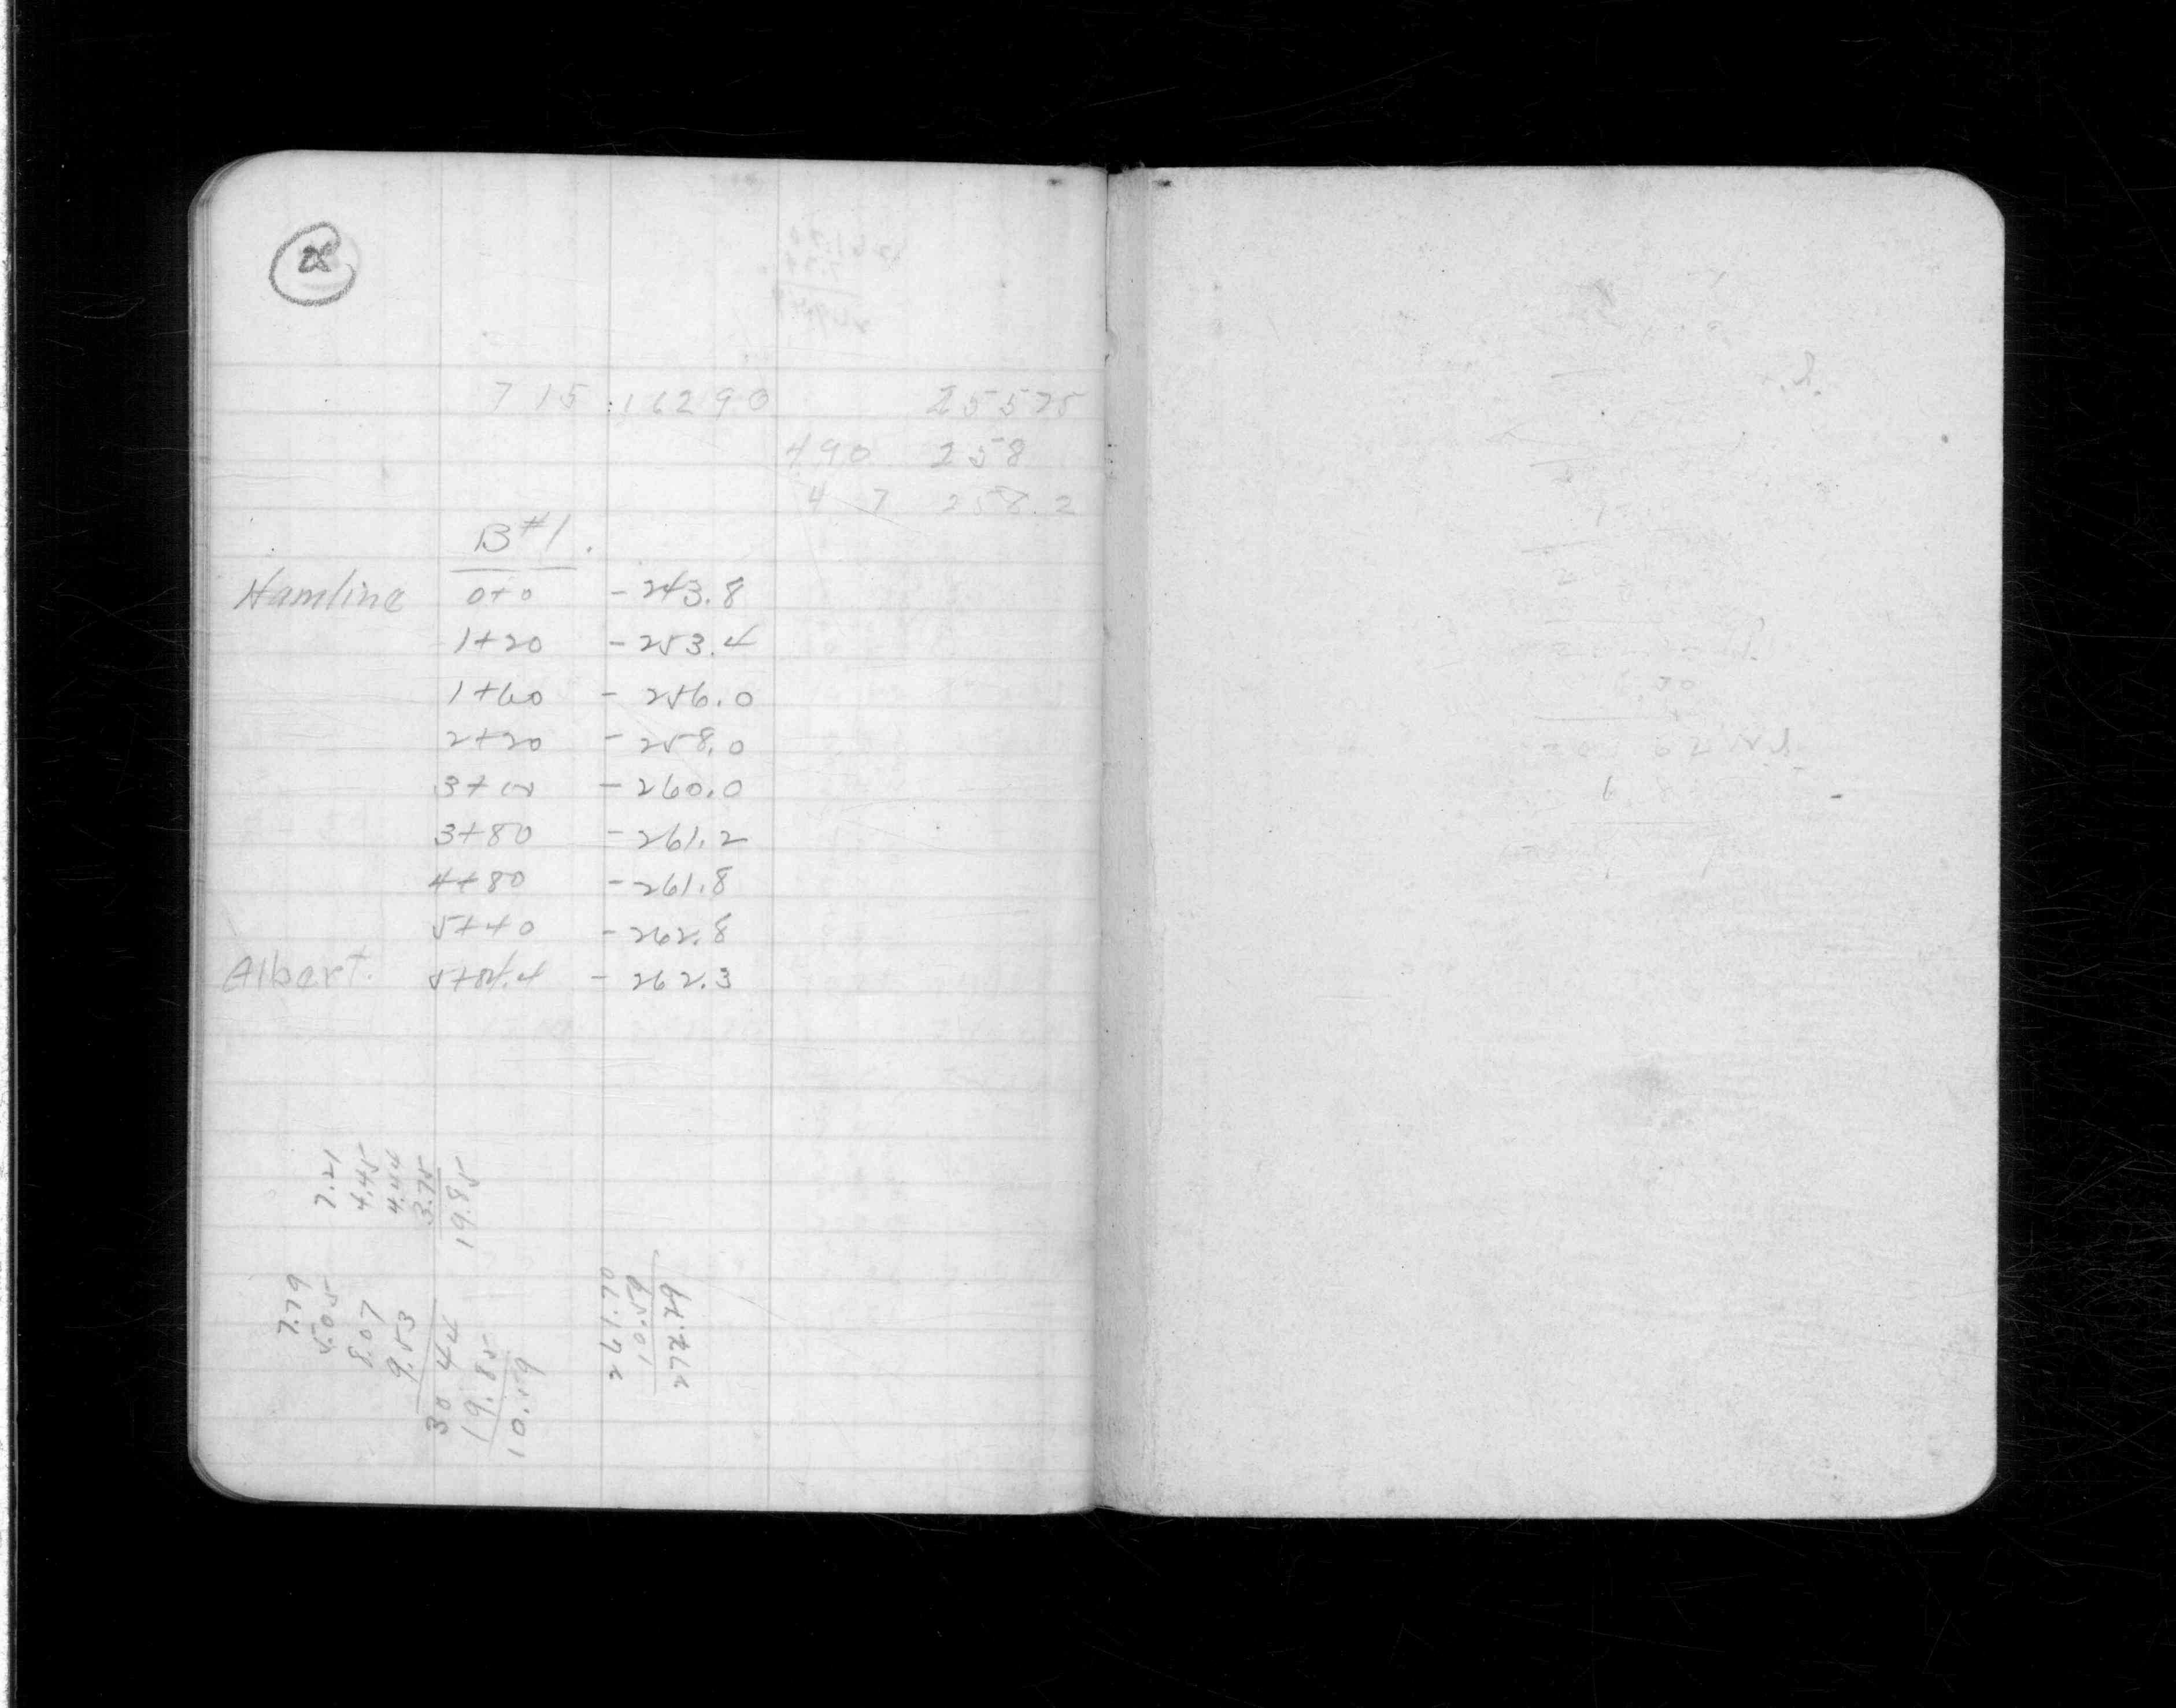 7 15 16290 25575
490 258
4 7 258.2
B#1.
Hamline 0+0 - 243.8
1+20 - 253.4
1+60 - 256.0
2+20 - 258.0
3+00 - 260.0
3+80 - 261.2
4+80 - 261.8
5+40 - 262.8
Albert. - 262.3
7.21
4.45
4.44
3.75
19.85
7.79
5.05
8.07
9.53
30 44
19.85
10.59
261.70
10.59